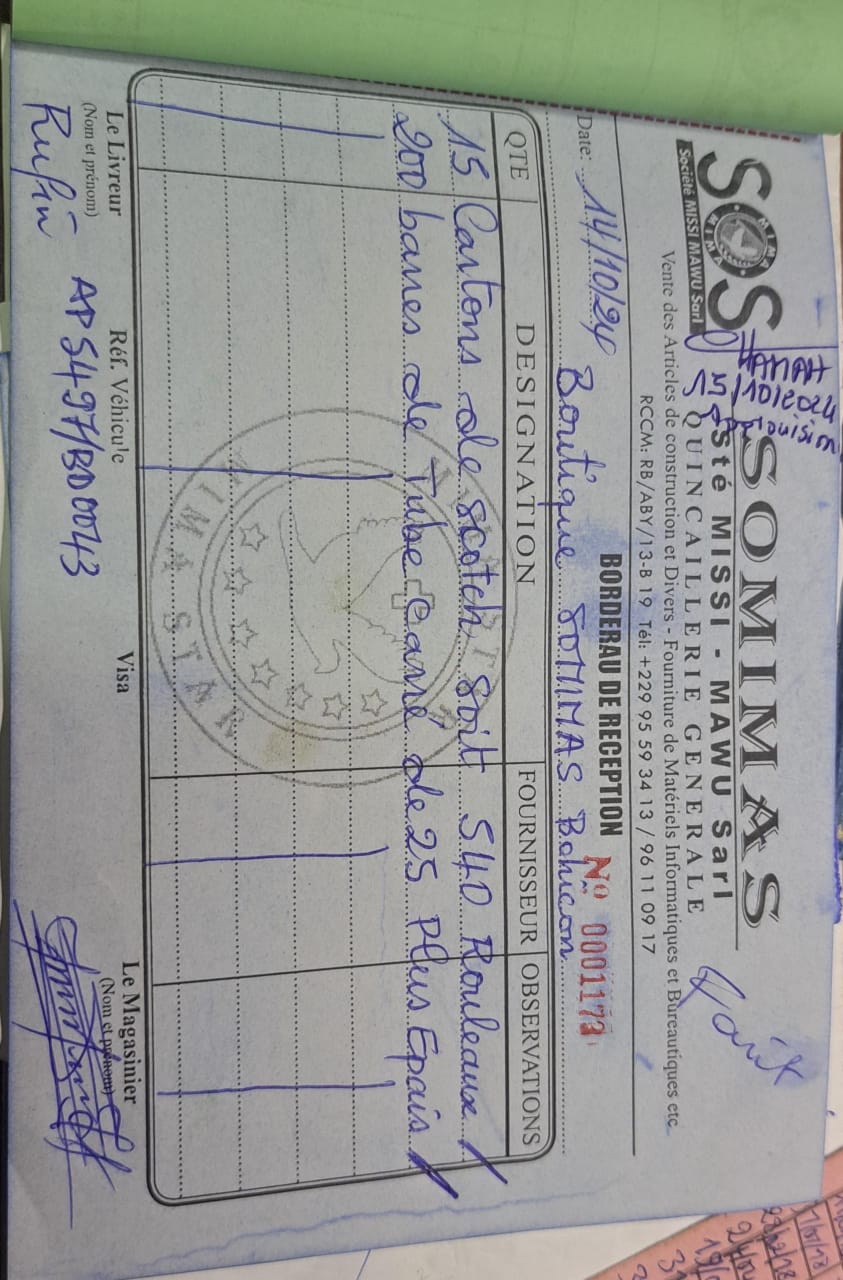 SOS
MIMA
Société MISSI MAWU Sarl
SOMIMAS
Sté MISSI - MAWU Sarl
QUINCAILLERIE GENERALE
Vente des Articles de construction et Divers - Fourniture de Matériels Informatiques et Bureautiques etc.
RCCM: RB/ABY/13-B 19 Tél: +229 95 59 34 13 / 96 11 09 17
BORDERAU DE RECEPTION Nº 0001173
Date: 14/10/24 Boutique SOMIMAS Bohicon
QTE DESIGNATION FOURNISSEUR OBSERVATIONS
15 Cartons de scotch soit 540 Rouleaux
200 barres de Tube carré de 25 Plus Epais
Le Livreur Réf. Véhicule Visa Le Magasinier
(Nom et prénom) (Nom et prénom)
Rufin AP5497/BD0043